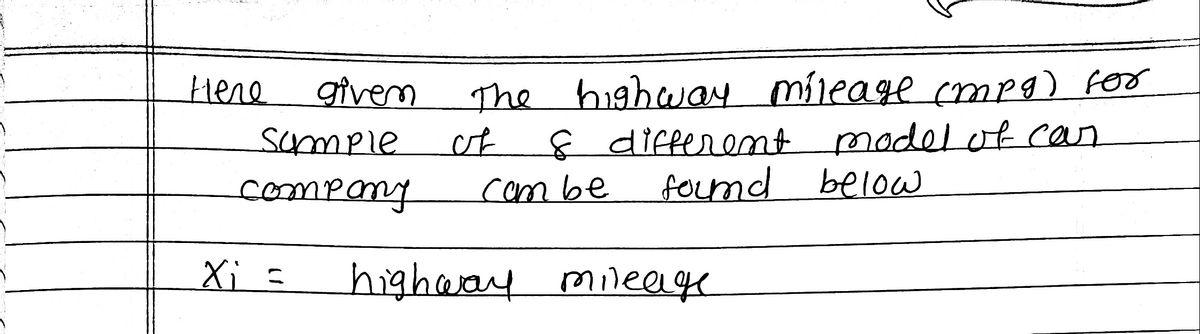 Here given The highway mileage (mpg) for
sample of 8 different model of car
company can be found below
Xi = highway mileage